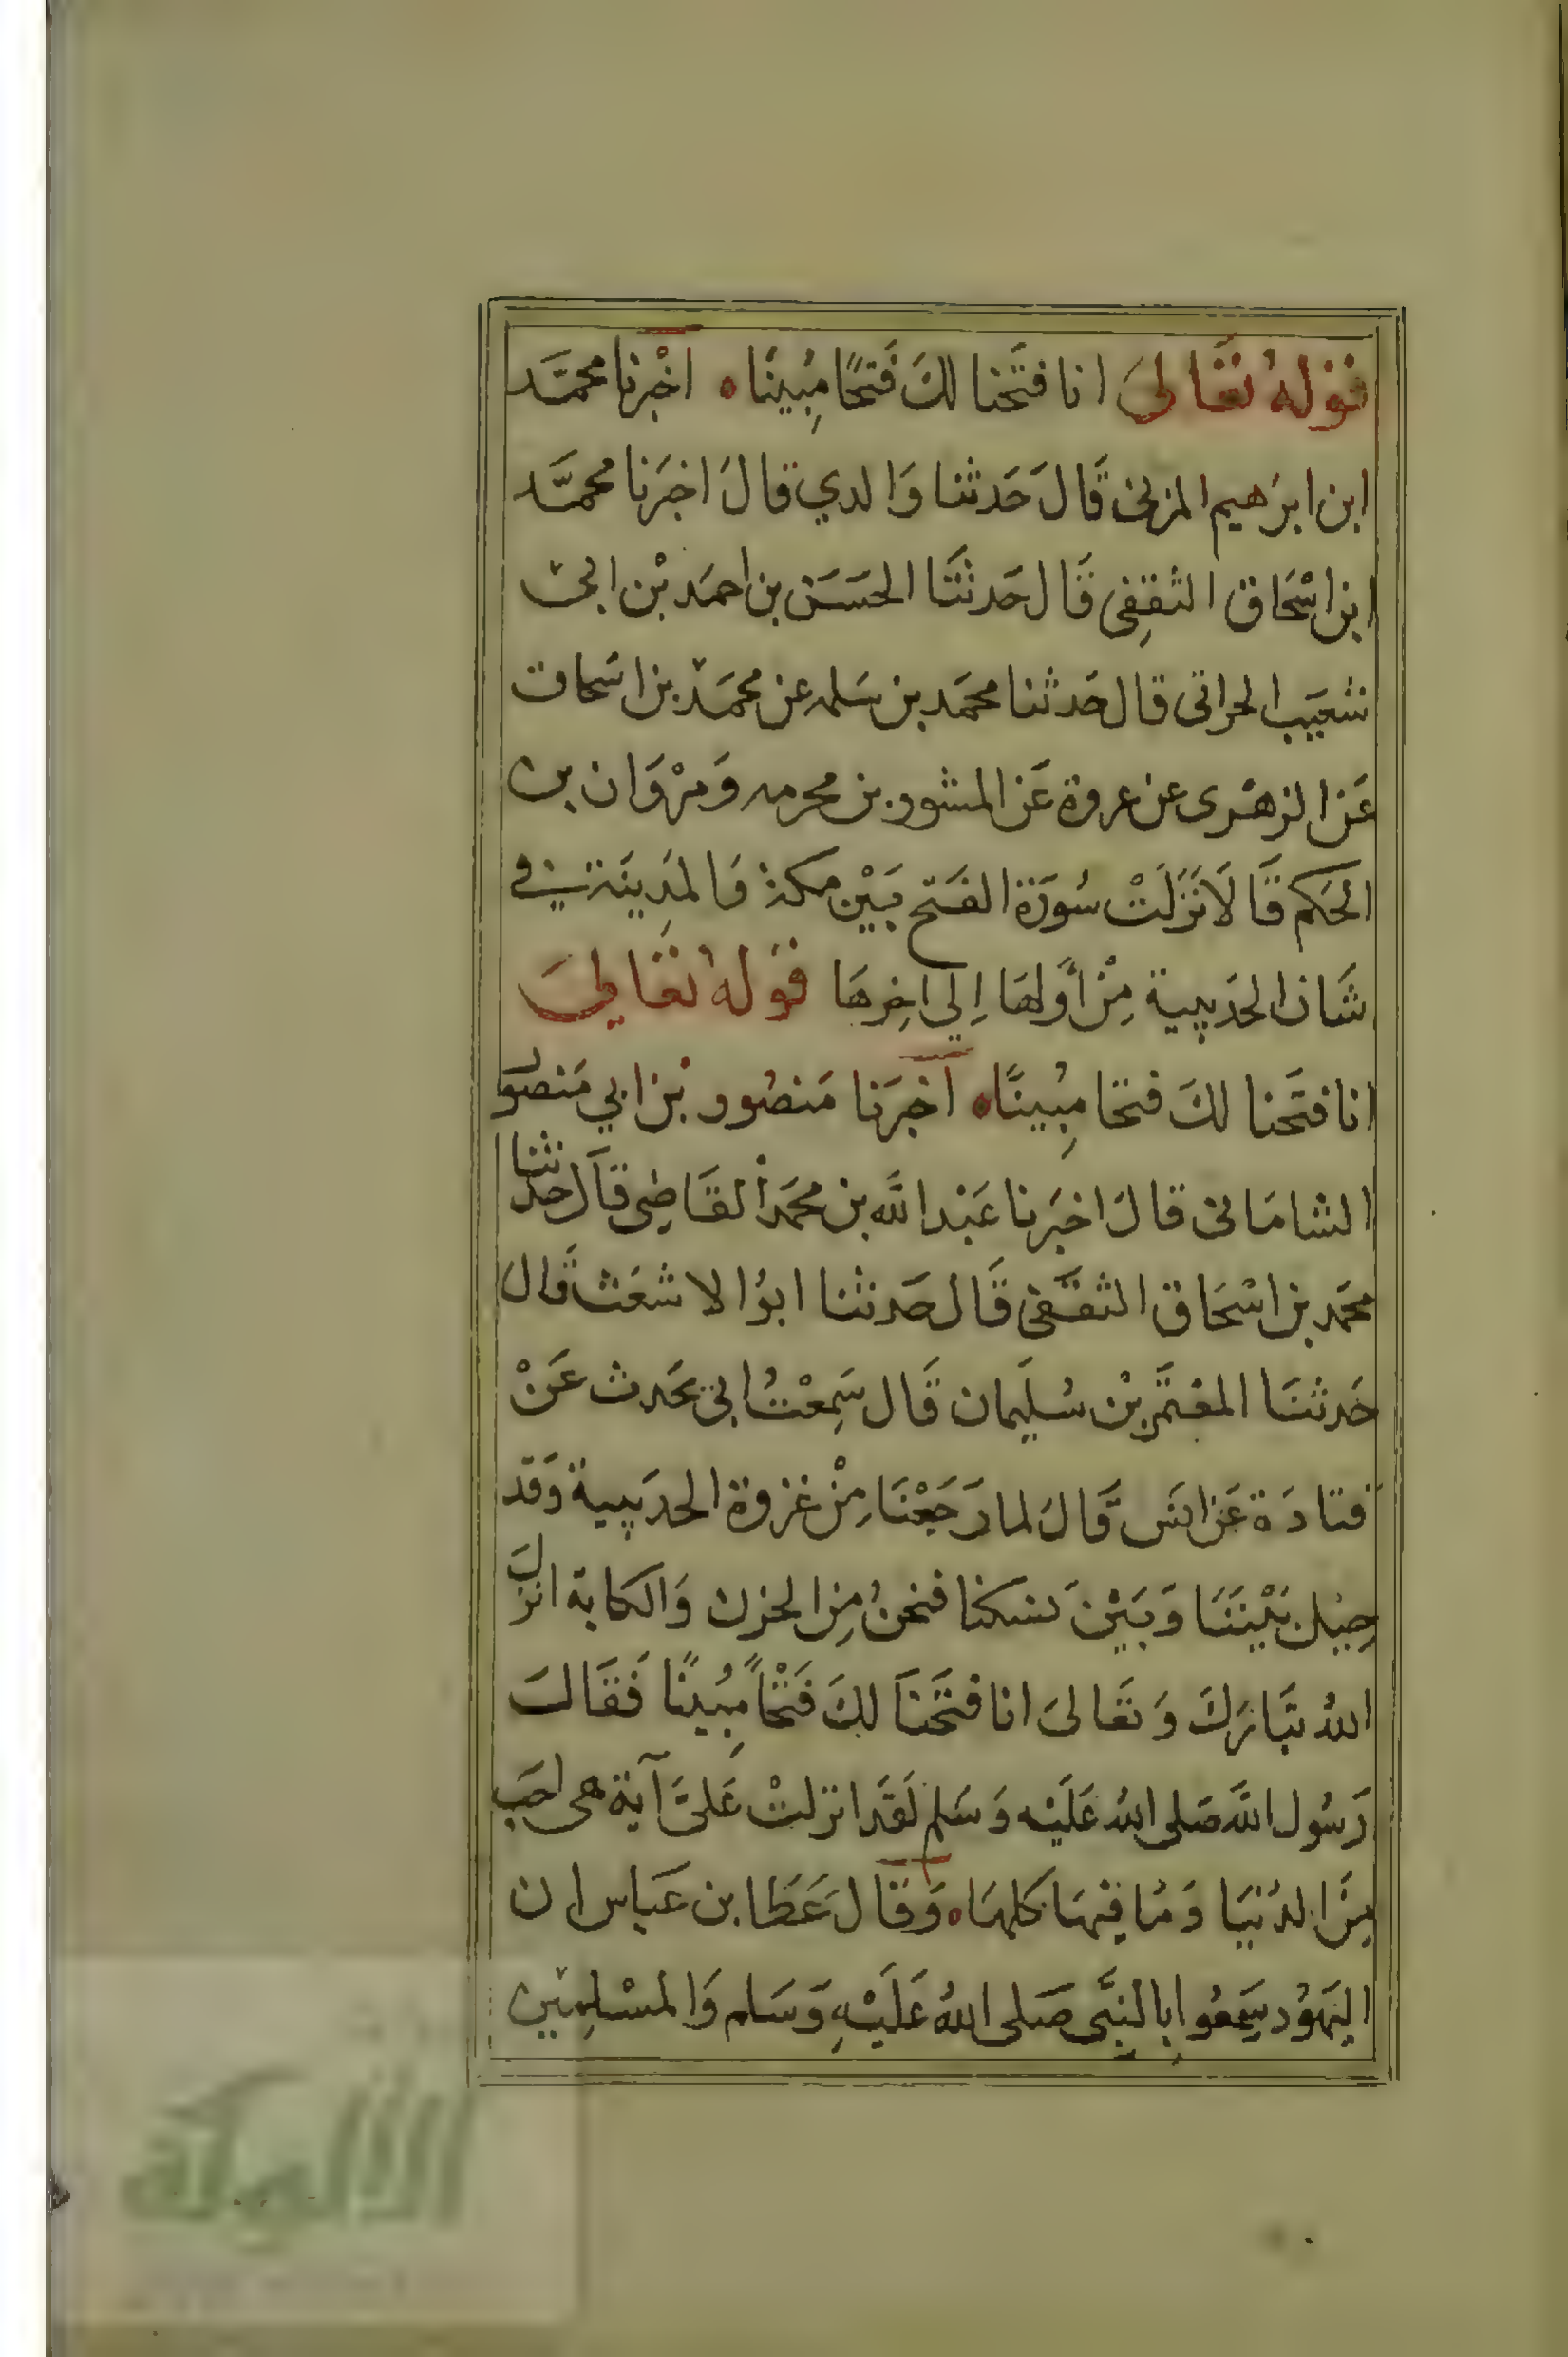 قوله تعالى انا فتحنا لك فَتحًا مُبِينًا ه اخبرنا محمَّد
ابن ابرَهيم المزنى قَالَ حَدثنا وَالدي قالَ اخبَرنا محمَّد
ابن اسْحَاق الثقِفى قَال حَدثنَا الحسَن بن احمَد بْن ابى
شعَيب الحرانى قال حَدثنا محمَد بن سَلمه عن محمَّد بن اسحاق
عَن الزهْرى عن عروة عَن المسْور بن محرمه وَمرْوَان بن
الحَكم قَالَا نَزَلَتْ سُورَة الفَتح بَيْن مكة وَالمَدِينَة في
شَان الحدَيبية مِنْ أوَلهَا اِلي اخِرهَا قوله تعالى
انا فتَحنا لكَ فتحًا مُبِينًا ه اخبَرَنا مَنصُور بن ابي مَنصُور
الشامَانى قالَ اخبَرنا عَبْد اللَّه بن محمَد القَاضِى قَال حَدثنا
محمَد بن اسْحَاق الثقَفى قَال حَدثنا ابوُ الاشعَث قَال
حَدثنَا المعتمَر بْن سُليَمان قَال سَمِعْتُ ابى يحَدث عَنْ
قتادَة عَن انَس قَالَ لما رَجَعْنَا مِنْ غزوة الحدَيبية وَقد
حِيْل بَيْننَا وَبَيْن نسكنا فنحنُ مِن الحزن وَالكابة انزلَ
اللهُ تبَارَكَ وَتعَالىَ انا فتَحْنَا لكَ فَتْحًا مُبِينًا فَقَالَ
رَسُول اللَّه صَلى اللهُ عَلَيْه وَسَلم لَقَد انزلتْ عَلىَّ آية هى احَب
مِنَ الدُنيَا وَمَا فيهَا كلهَا ه وَقَالَ عَطَا بن عَباس ان
اليَهوُد سَمِعُوا بِالنبَّى صَلى اللهُ عَلَيْهِ وَسَلم وَالمسْلِمين